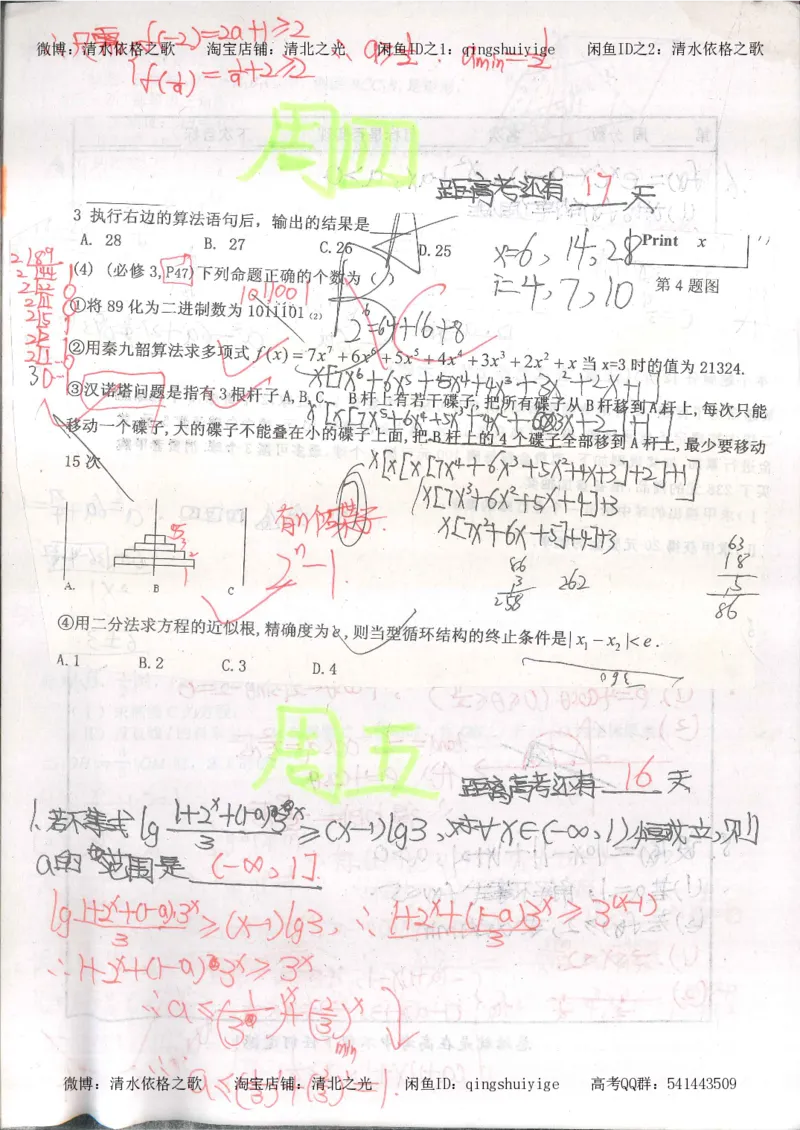 ∴只需 f(-2)=2a+1≥2
微博：清水依格之歌 淘宝店铺：清北之光 闲鱼ID之1：qingshuiyige 闲鱼ID之2：清水依格之歌
周四
距高考还有 17 天
3 执行右边的算法语句后，输出的结果是
A. 28 B. 27 C.26 D.25
Print x
x=6, 14, 28
i=4, 7, 10
第4题图
(4) (必修3,P47)下列命题正确的个数为 ( )
1011001
①将89化为二进制数为1011101(2)
2⁶=64+16+8
②用秦九韶算法求多项式 f(x)=7x⁷+6x⁶+5x⁵+4x⁴+3x³+2x²+x当x=3时的值为21324.
x[7x⁶+6x⁵+5x⁴+4x³+3x²+2x+1]
③汉诺塔问题是指有3根杆子A,B,C. B杆上有若干碟子,把所有碟子从B杆移到A杆上,每次只能
移动一个碟子,大的碟子不能叠在小的碟子上面,把B杆上的4个碟子全部移到A杆上,最少要移动
15次
x[x[x[7x⁴+6x³+5x²+4x+3]+2]+1]
x[7x³+6x²+5x+4]+3
x[7x²+6x+5]+4]+3
有n个碟子.
2ⁿ-1
A. B C
86
3
258
262
63
18
5
86
④用二分法求方程的近似根,精确度为e,则当型循环结构的终止条件是|x₁-x₂|<e.
A.1 B.2 C.3 D.4
周五
距离高考还有 16 天
1. 若不等式 lg (1+2ˣ+(1-a)3ˣ)/3 ≥(x-1)lg3, 对∀x∈(-∞,1)恒成立,则
a的范围是 (-∞,1].
lg (1+2ˣ+(1-a)·3ˣ)/3 ≥(x-1)lg3, ∴ (1+2ˣ+(1-a)3ˣ)/3 ≥ 3^(x-1)
∴ 1+2ˣ+(1-a)·3ˣ≥3ˣ
∴ a≤(1/3)ˣ+(2/3)ˣ min
微博：清水依格之歌 淘宝店铺：清北之光 闲鱼ID：qingshuiyige 高考QQ群：541443509